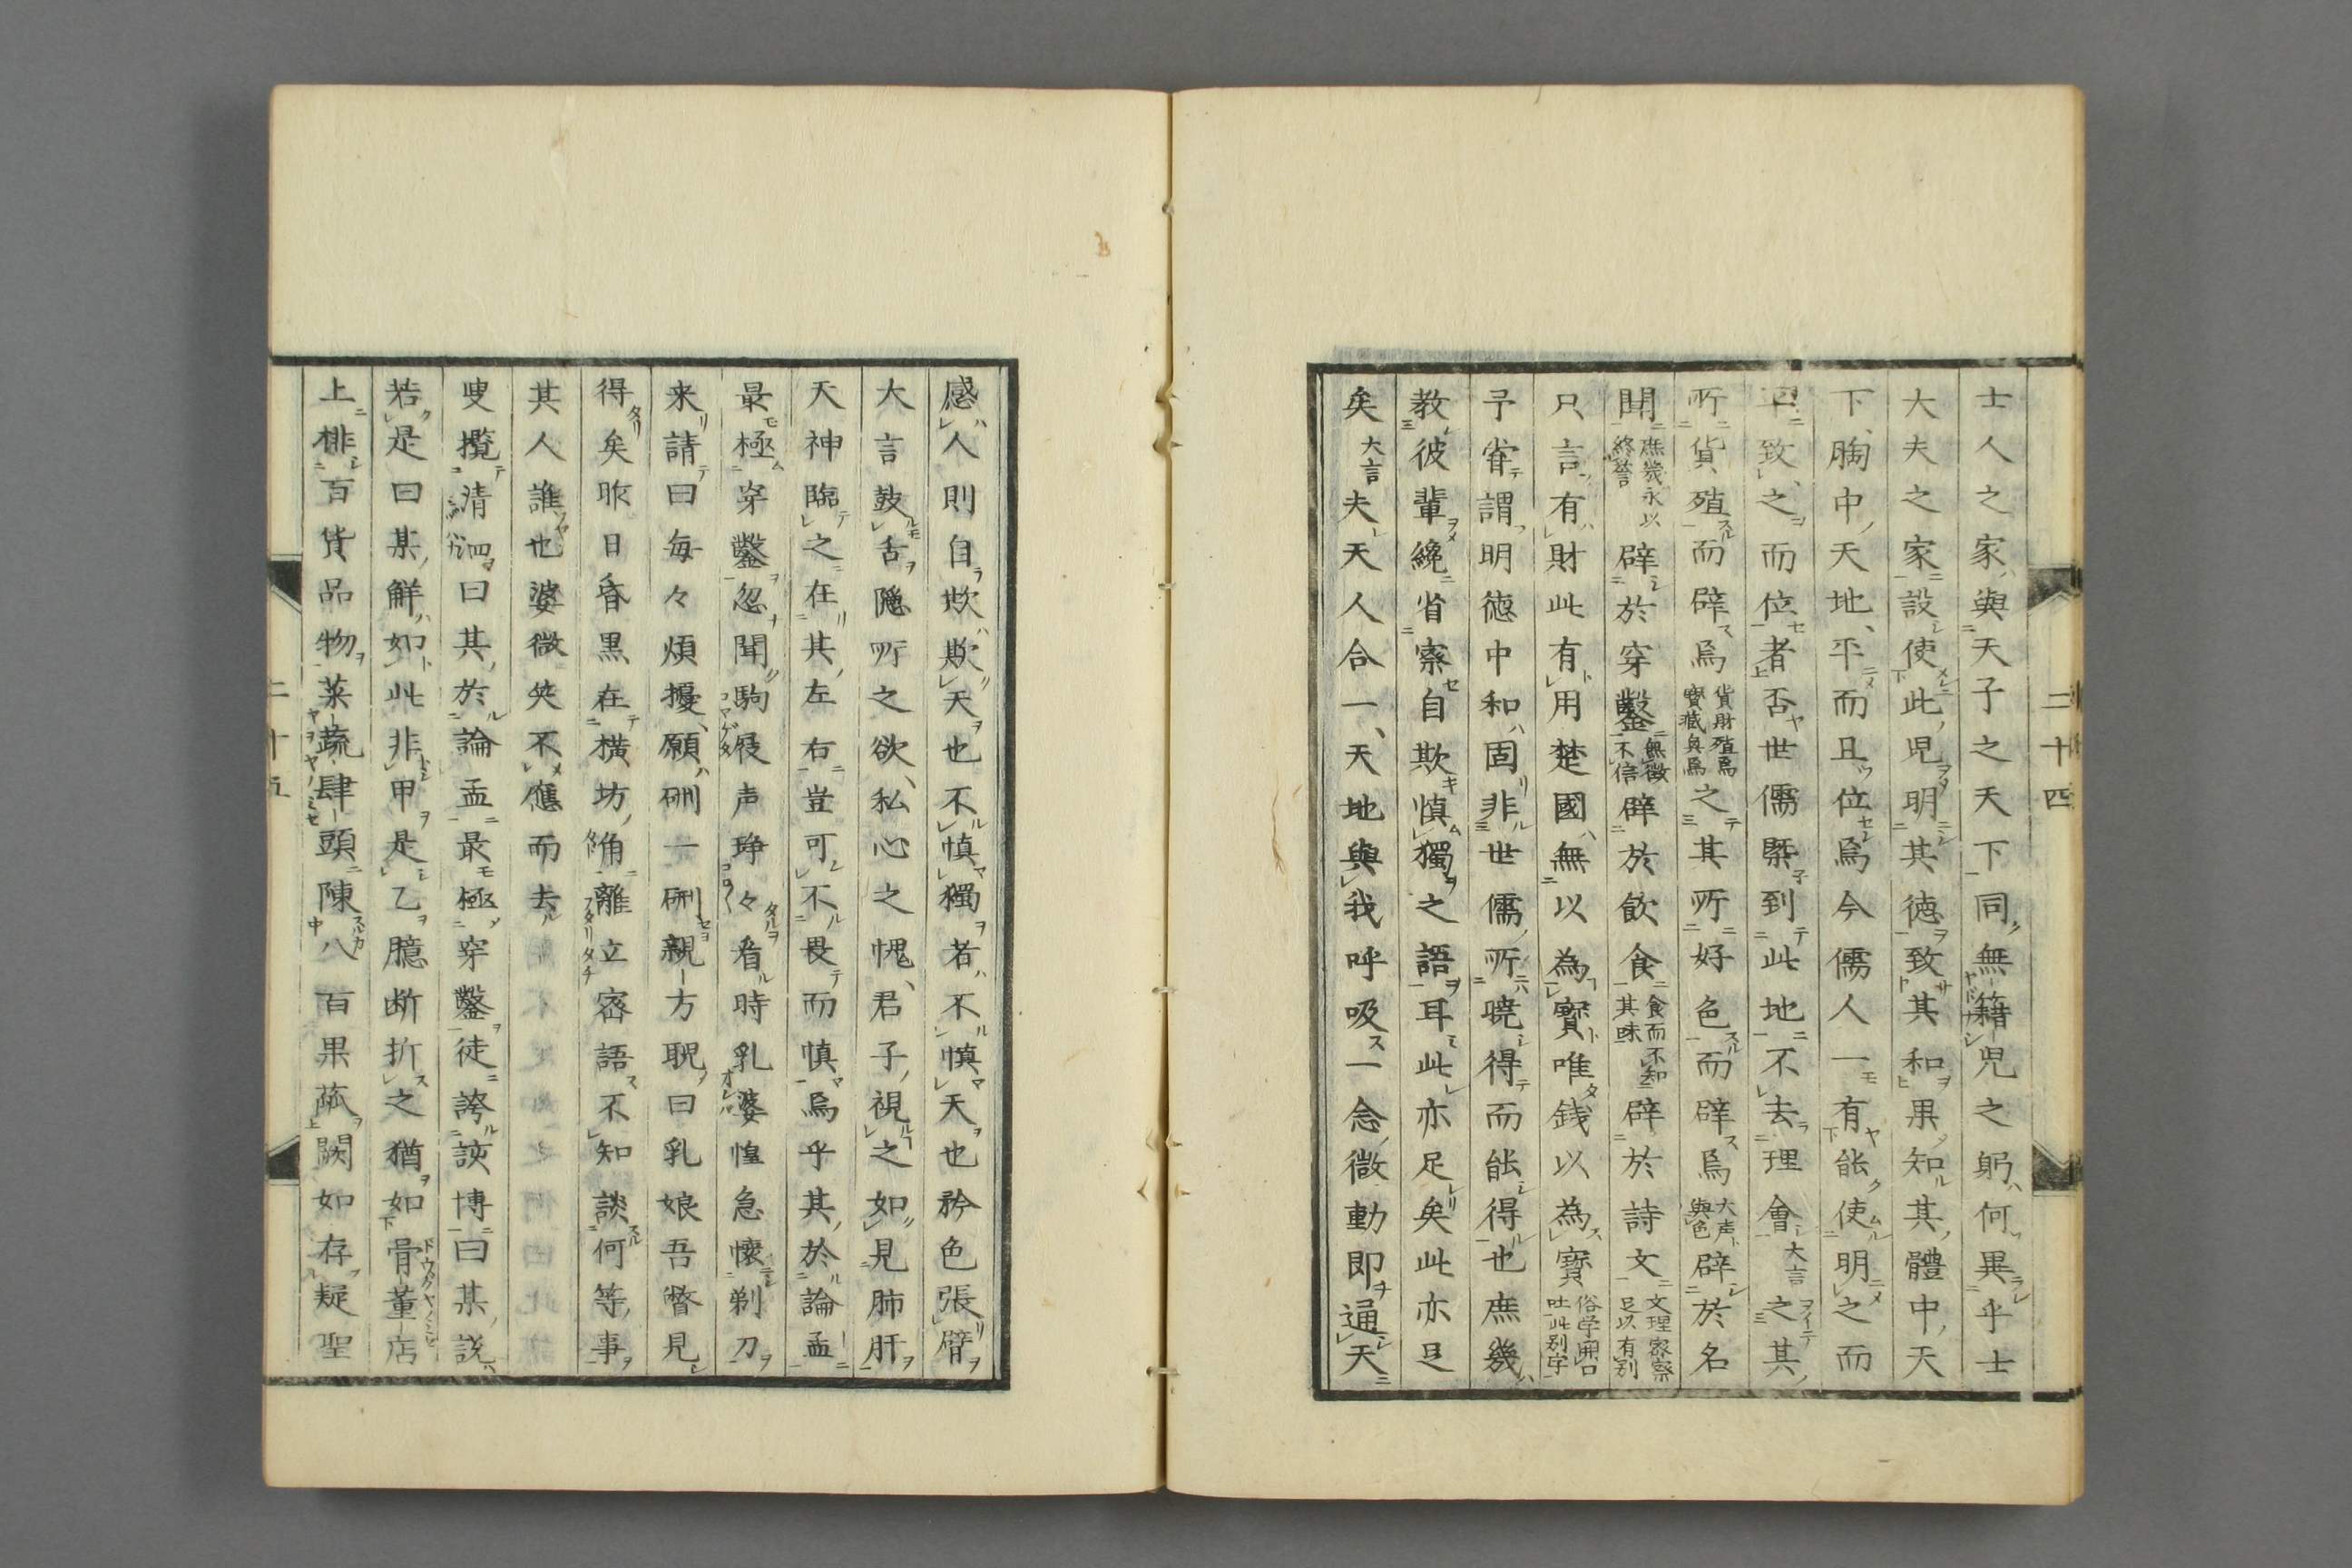 士人之家與天子之天下同無籍兒之躬何異乎士
大夫之家設使此児明其徳致其和果知其體中天
下胸中天地平而且位焉今儒人一有能使明之而
平致之而位者否世儒緊到此地不去理會大言之其
所貨殖而辟焉貨財殖焉寶藏與焉之其所好色而辟焉大声與色辟於名
聞庶幾永以終誉辟於穿鑿無徴不信辟於飲食食而不知其味辟於詩文文理密察足以有别
只言有財此有用楚國無以為寳唯銭以為寳俗学開口吐此别字
予甞謂明徳中和固非世儒所曉得而能得也庶幾
教彼輩纔省察自欺慎獨之語耳此亦足矣此亦足
矣大言夫天人合一天地與我呼吸一念微動即通天
二十四
感人則自欺欺天也不慎獨者不慎天也矜色張臂
大言鼓舌隠所之欲私心之愧君子視之如見肺肝
天神臨之在其左右豈可不畏而慎焉乎其於論孟
最極穿鑿忽聞駒屐声琤々看時乳婆惶急懐剃刀
来請曰毎々煩擾願硎一硎親方聣曰乳娘吾瞥見
得矣昨日昏黒在横坊角離立密語不知談何等事
其人誰也婆微笑不應而去
叟攬清泗曰其於論孟最極穿鑿徒誇該博曰某説
若是曰某觧如此非甲是乙臆断折之猶如骨董店
上排百貨品物菜蔬肆頭陳八百果蓏闕如存疑聖
二十五